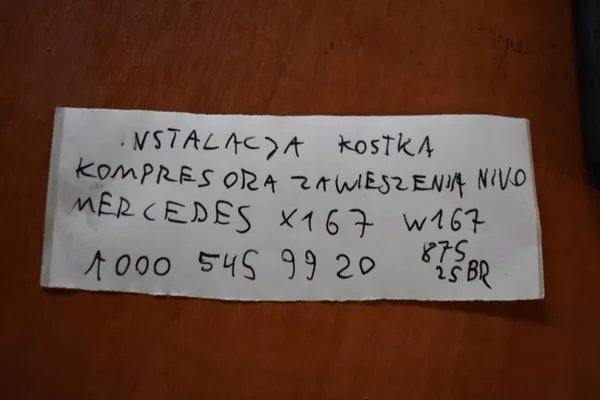 INSTALACJA KOSTKA
KOMPRESORA ZAWIESZENIA NIVO
MERCEDES X167 W167
A000 545 99 20
875
25BR